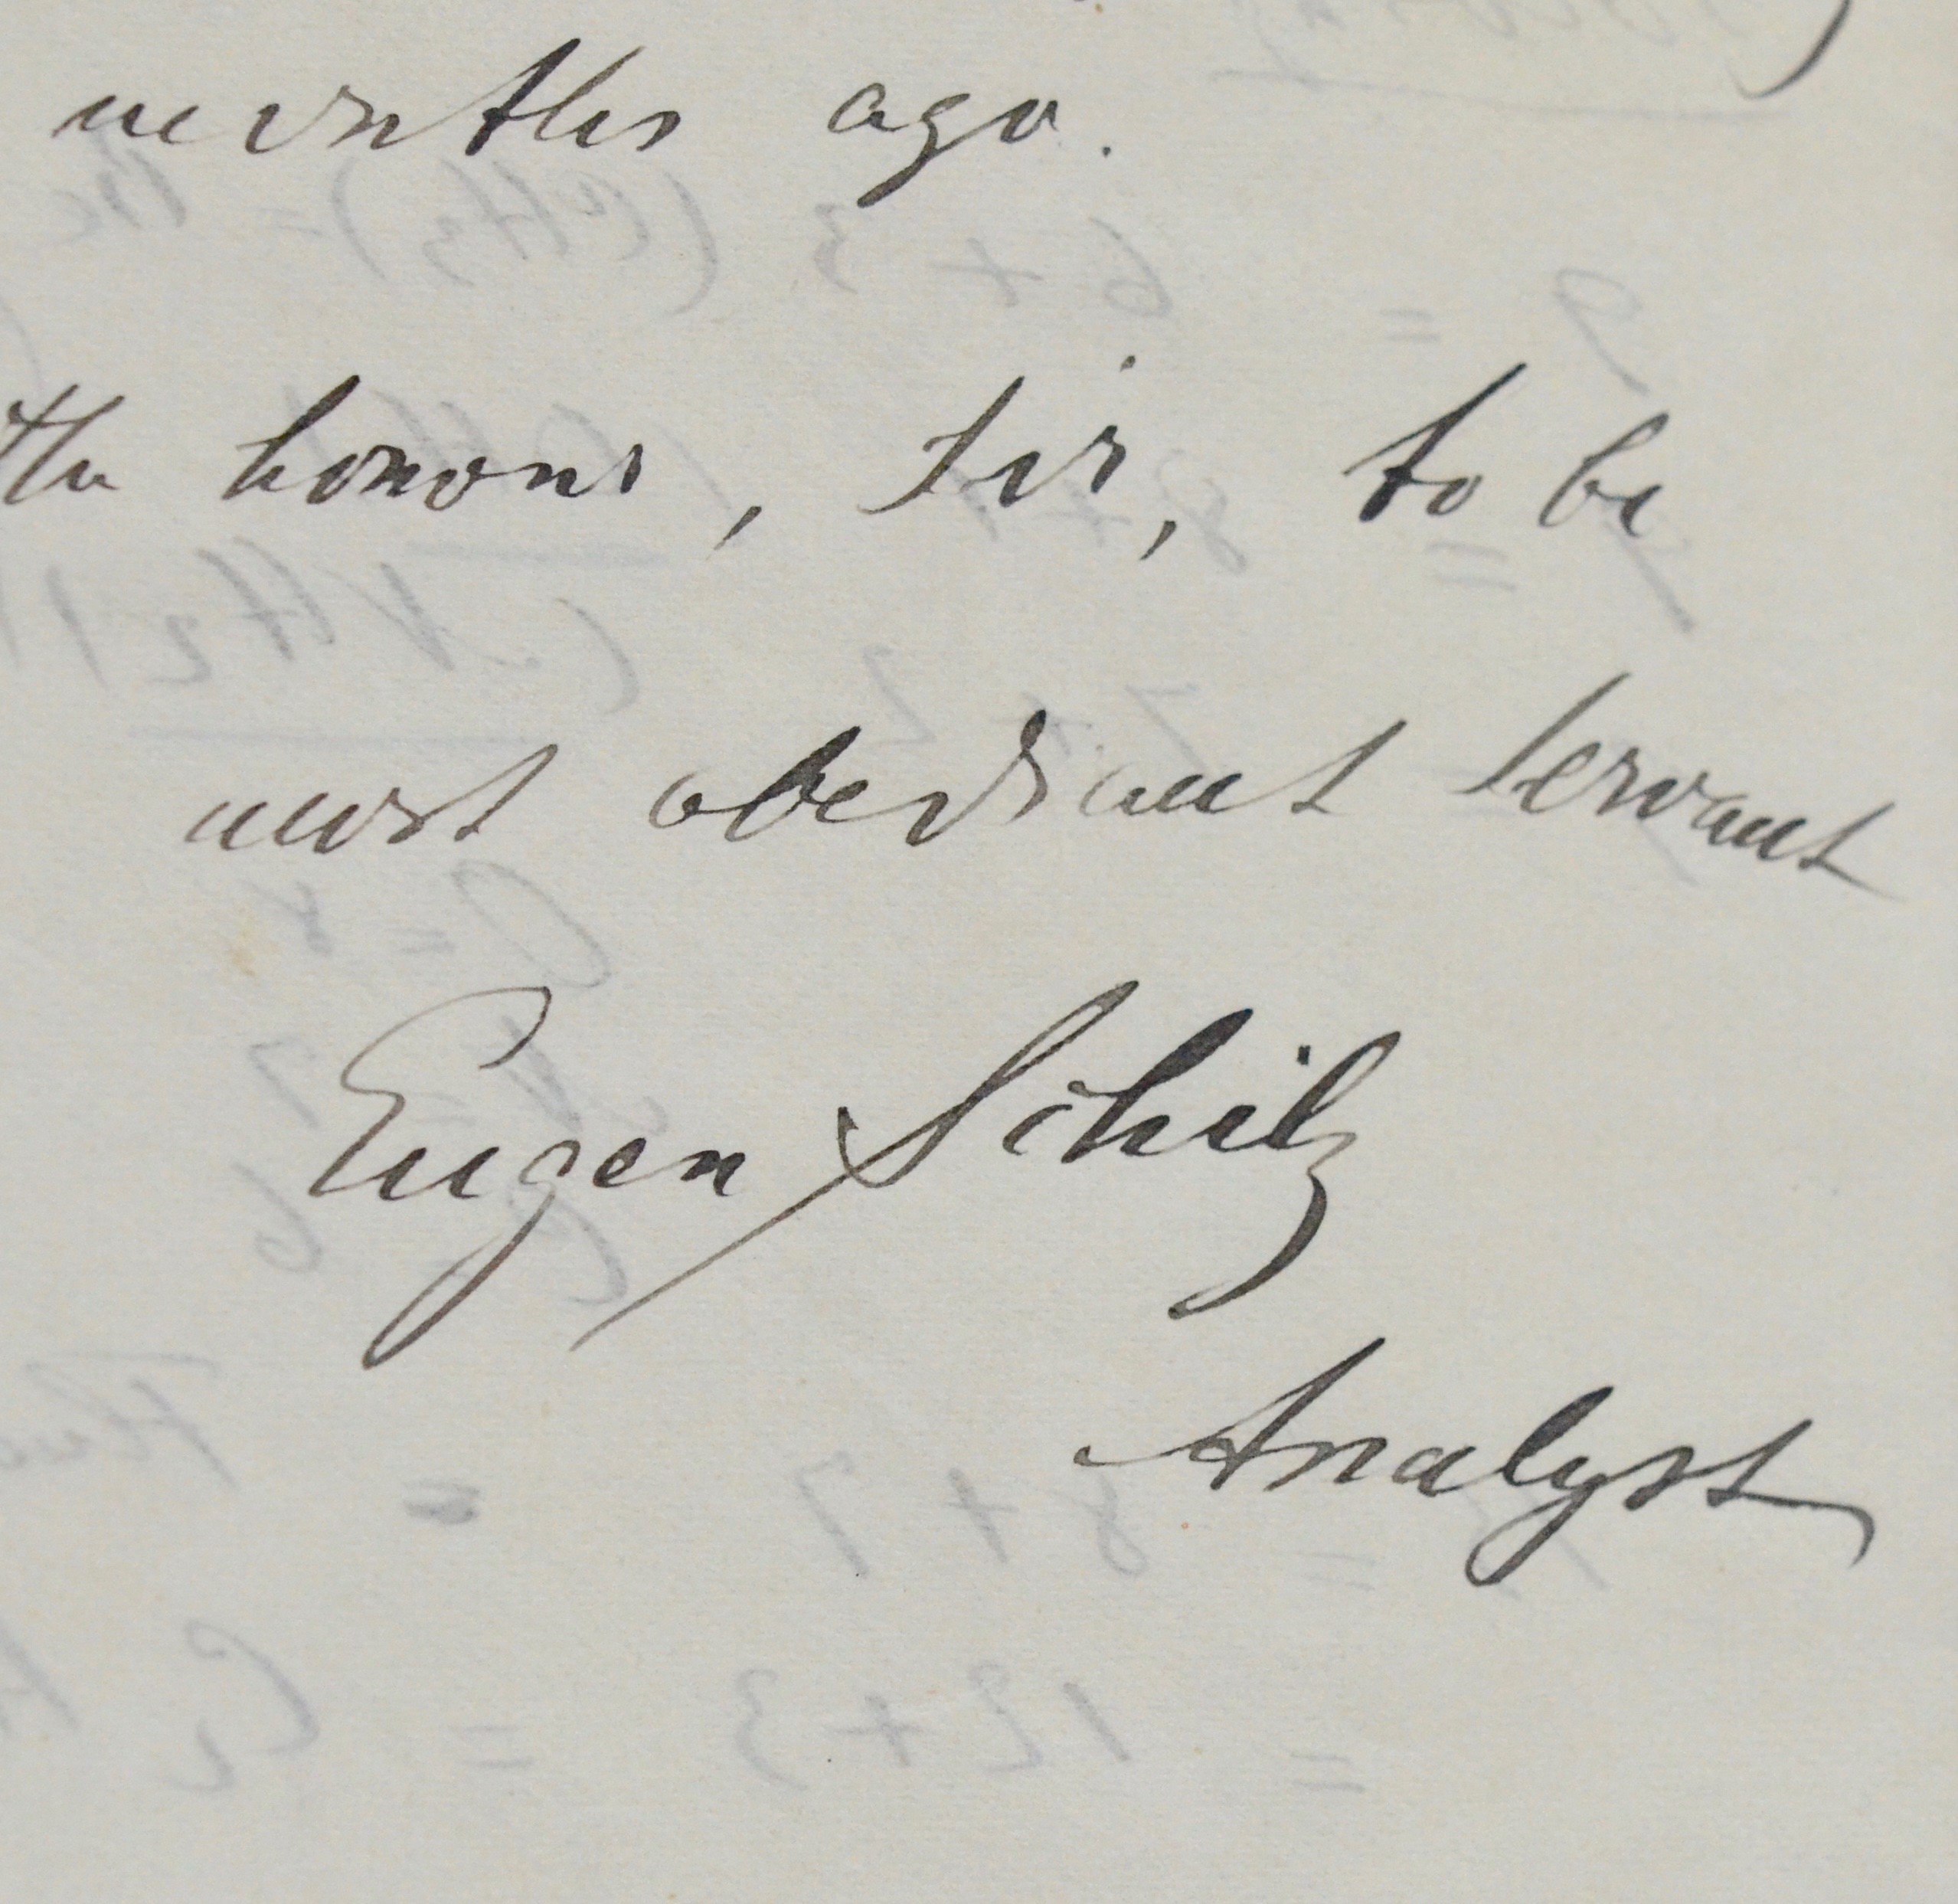 months ago.
the honour, Sir, to be
most obediant servant
Eugen Schilz
Analyst